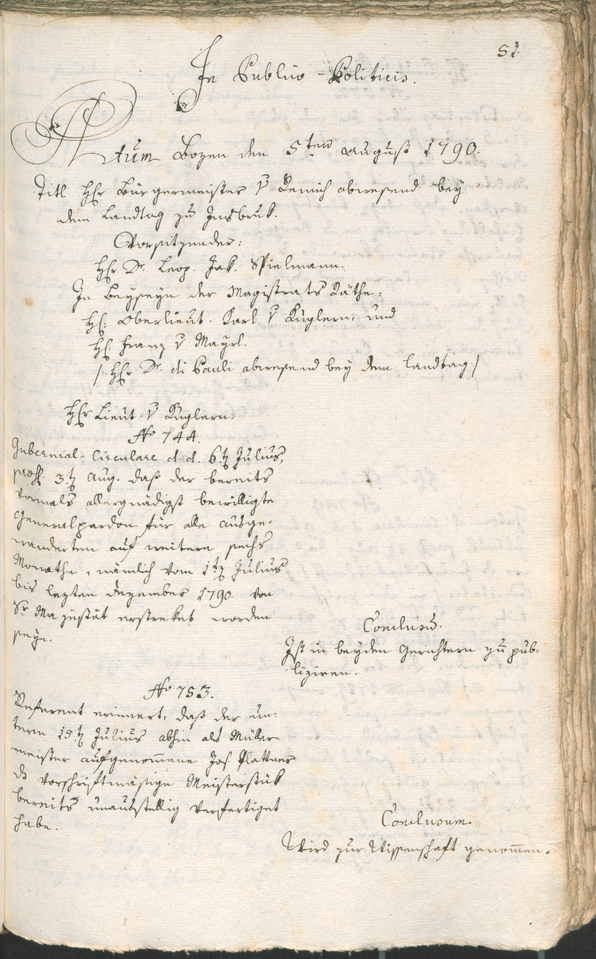 51.
In Publico-Politicis.
Actum Bozen den 5ten August 1790.
Titl Hr Bürgermeister v Remich abwesend bey
dem Landtag zu Insbruk.
Vorsitzender:
Hr Dr. Leop. Jak. Spielmann.
In Beyseyn der Magistrats Räthe:
H. Oberlieut. Karl v Kuglern, und
H. Franz v Mayrl.
/: Hr Dr. di Pauli abwesend bey dem Landtag :/
Hr Lieut. v Kuglern.
No 744.
Gubernial-Circulare d.d. 6t Julius,
præs. 3t Aug. daß der bereits
vormals allergnädigst bewilligte
Generalpardon für alle ausge-
wanderten auf weitere sechs
Monathe, nämlich vom 1t Julius
bis lezten Dezember 1790 von
Sr Majestät erstrekt worden
seye.
Conclusum.
Ist in beyden Gerichtern zu pub-
liziren.
No 753.
Referent erinnert, daß der un-
term 19t Julius abhin als
meister aufgenommene Jos Plattner
d vorschriftmäßige Meisterstük
bereits unausstellig verfertiget
habe.
Conclusum.
Wird zur Wissenschaft genommen.